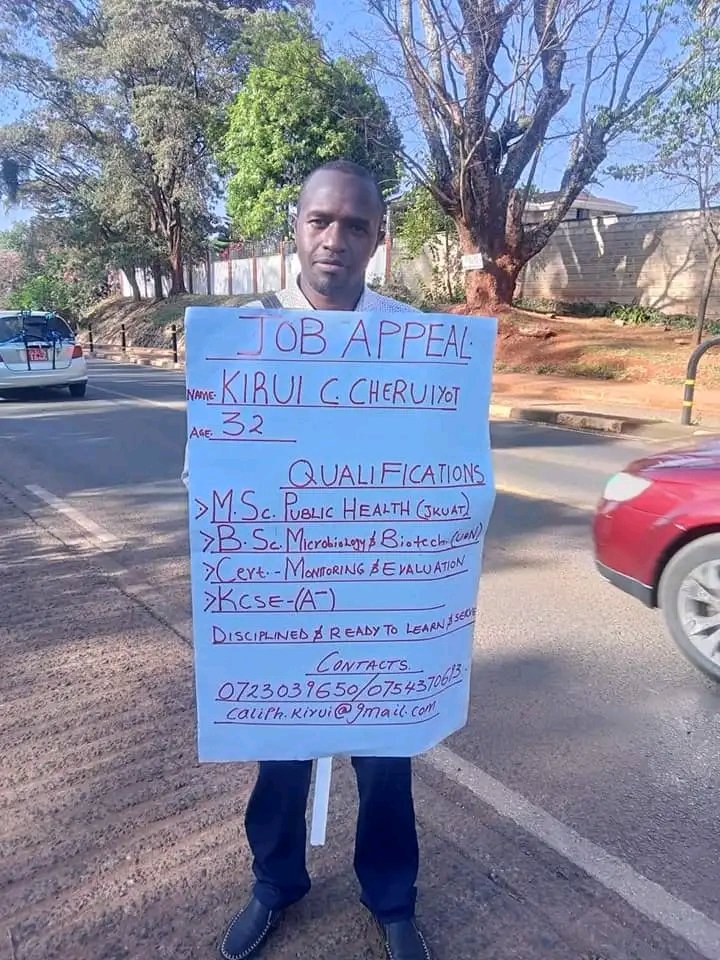 JOB APPEAL.
NAME- KIRUI C. CHERUIYOT
AGE. 32
QUALIFICATIONS
>M.Sc. PUBLIC HEALTH (JKUAT)
>B.Sc. Microbiology & Biotech. (UoN)
>Cert.- MONITORING & EVALUATION
>KCSE-(A-)
DISCIPLINED & READY TO LEARN & SERVE
CONTACTS.
0723039650/0754370613.
caliph.kirui@gmail.com